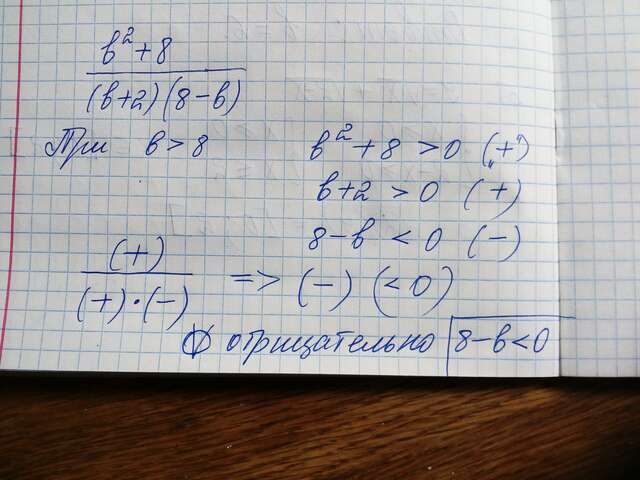 b²+8
(b+2)(8-b)
При b>8
b²+8>0 („+")
b+2>0 (+)
8-b<0 (-)
(+)
(+)·(-)
=> (-) (<0)
отрицательно 8-b<0